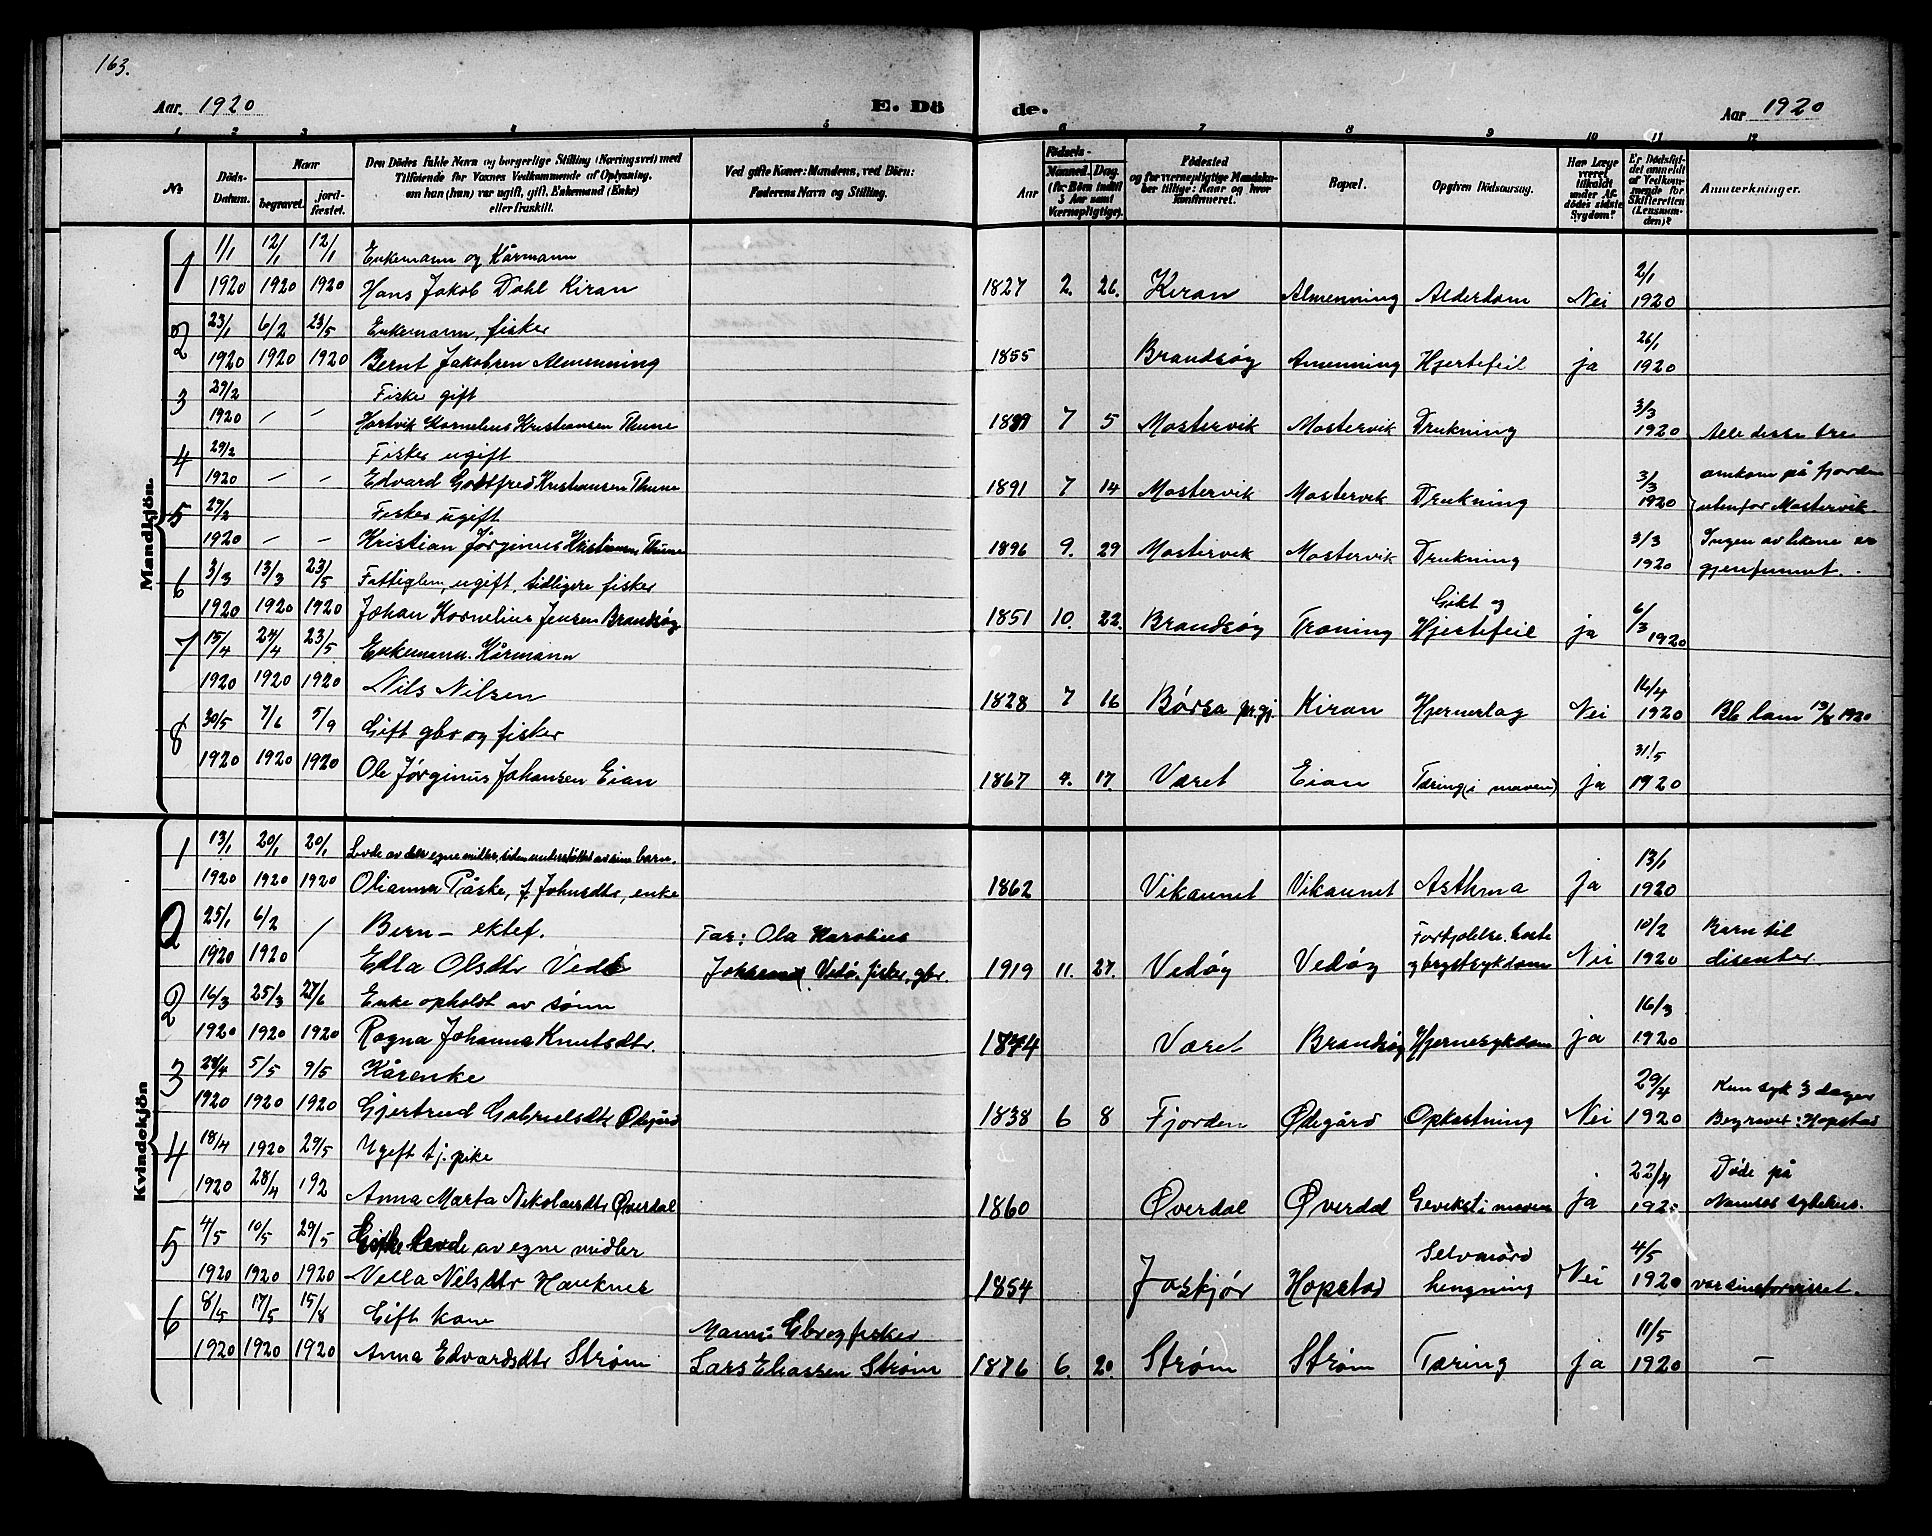 163.
Aar. 1920 E. Dö de. Aar 1920
1 2 3 4 5 6 7 8 9 10 11 12
No
Döds-Datum.
Naar
begravet.
jord-fæstet.
Den Dödes fulde Navn og borgerlige Stilling (Næringsvei) med
Tilföiende for Voxnes Vedkommende af Oplysning,
om han (hun) var ugift, gift, Enkemand (Enke)
eller fraskilt.
Ved gifte Koner: Mandens, ved Börn:
Faderens Navn og Stilling.
Födsels-
Aar
Maaned. Dag.
(for Börn indtil
3 Aar samt
Værnepligtige).
Födested
og for værnepligtige Mandska-
ber tillige: Naar og hvor
konfirmeret.
Bopæl.
Opgiven Dödsaarsag.
Har Læge
været
tilkaldt
under Af-
dödes sidste
Sygdom?
Er Dödsfal-
det anmeldt
af Vedkom-
mende for
Skifteretten
(Lensman-
den)?
Anmærkninger.
Mandkjön.
1 1/1 12/1 12/1 Enkemann og Kårmann
1920 1920 1920 Hans Jakob Dahl Kiran 1827 2. 26. Kiran Almenning Alderdom Nei 2/1 1920
2 23/1 6/2 23/5 Enkemann, fisker
1920 1920 1920 Bernt Jakobsen Almenning 1855 Brandsøy Amenning Hjertefeil ja 26/1 1920
3 29/2 Fisker gift
1920 – – Hartvik Kornelius Kristiansen Thune 7 5 Mastervik Mastervik Drukning 3/3 1920 Alle disse tre
4 29/2 Fisker ugift
1920 – – Edvard Godtfred Kristiansen Thune 1891 7 14 Mastervik Mastervik Drukning 3/3 1920 omkom på fjorden
utenfor Mastervik
5 29/2 Fisker ugift
1920 – – Kristian Jørginus Kristiansen Thune 1896 9. 29 Mastervik Mastervik Drukning 3/3 1920 Ingen av likene er
gjenfunnet.
6 3/3 13/3 23/5 Fattiglem, ugift, tidligere fisker
1920 1920 1920 Johan Kornelius Jensen Brandsøy 1851 10. 22. Brandsøy Traning Gikt og Hjertefeil ja 6/3 1920
7 15/4 24/4 23/5 Enkemann. Kårmann
1920 1920 1920 Nils Nilsen 1828 7 16 Børsa pr.gj. Kiran Hjerneslag Nei 16/4 1920
8 30/5 7/6 5/9 Gift gbr og fisker
1920 1920 1920 Ole Jørginus Johansen Eian 1867 17. Været Eian Tæring (i maven) ja 31/5 1920
Kvindekjön
1 13/1 20/1 20/1 Levde av egne midler, siden understøttet av sine barn.
1920 1920 1920 Olianna Påske, f. Johnsdtr, enke 1862 Vikaunet Vikaunet Asthma ja 13/1 1920
2 25/1 6/2 / Barn – ektef. Far: Ola Karolius
1920 1920 Edla Olsdtr Johansen Vedø. fisker, gbr. 1919 11. 27. Vedøy Vedøy Forkjølelse, hoste og brystsykdom Nei 10/2 1920 Barn til
disenter
2 16/3 25/3 27/6 Enke opholdt av sønn
1920 1920 1920 Ragna Johanna Knutsdtr. Været Brandsøy Hjernesykdom ja 16/3 1920
3 28/4 5/5 9/5 Kårenke
1920 1920 1920 Gjertrud Gabrielsdtr Ødegård 1838 6 8 Fjorden Ødegård Opkastning Nei 29/4 1920 Kun syk 3 dager
Begravet: Hopstad
4 18/4 1920 29/5 Ugift tj. pike
1920 28/4 192 Anna Marta Nikolaisdtr Øverdal 1860 Øverdal Øverdal Gevekst i maven ja 22/4 1920 Døde på
Namsos sykehus.
5 4/5 10/5 29/5 Enke levde av egne midler
1920 1920 1920 Nella Nilsdtr Hauknes 1854 Joskjør Hopstad Selvmord hengning Nei 4/5 1920 var sinnsforvirret.
6 8/5 17/5 15/8 Gift kone Mann: Gbr og fisker
1920 1920 1920 Anna Edvardsdtr Strøm Lars Eliassen Strøm 1876 6. 20. Strøm Strøm Tæring ja 11/5 1920 –